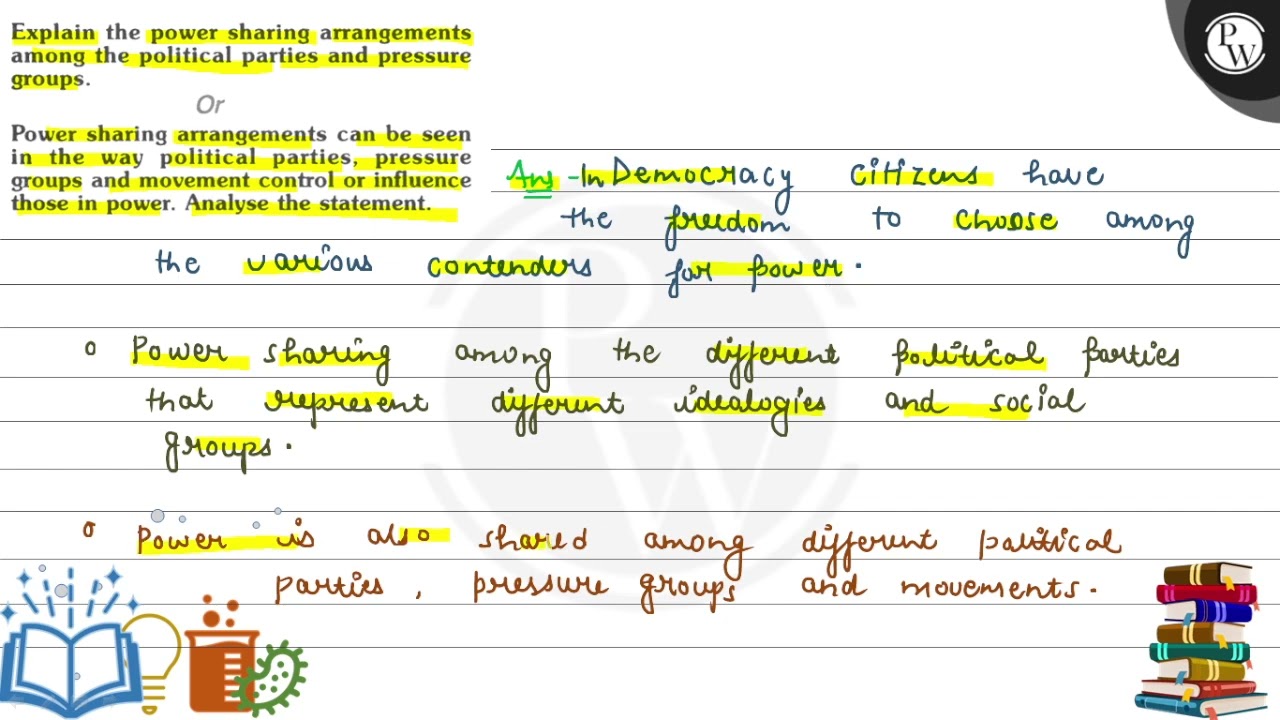 Explain the power sharing arrangements
among the political parties and pressure
groups.
Or
Power sharing arrangements can be seen
in the way political parties, pressure
groups and movement control or influence
those in power. Analyse the statement.
PW
Ans - In Democracy citizens have
the freedom to choose among
the various contenders for power.
Power sharing among the different political parties
that represent different idealogies and social
groups.
Power is also shared among different political
parties, pressure groups and movements.